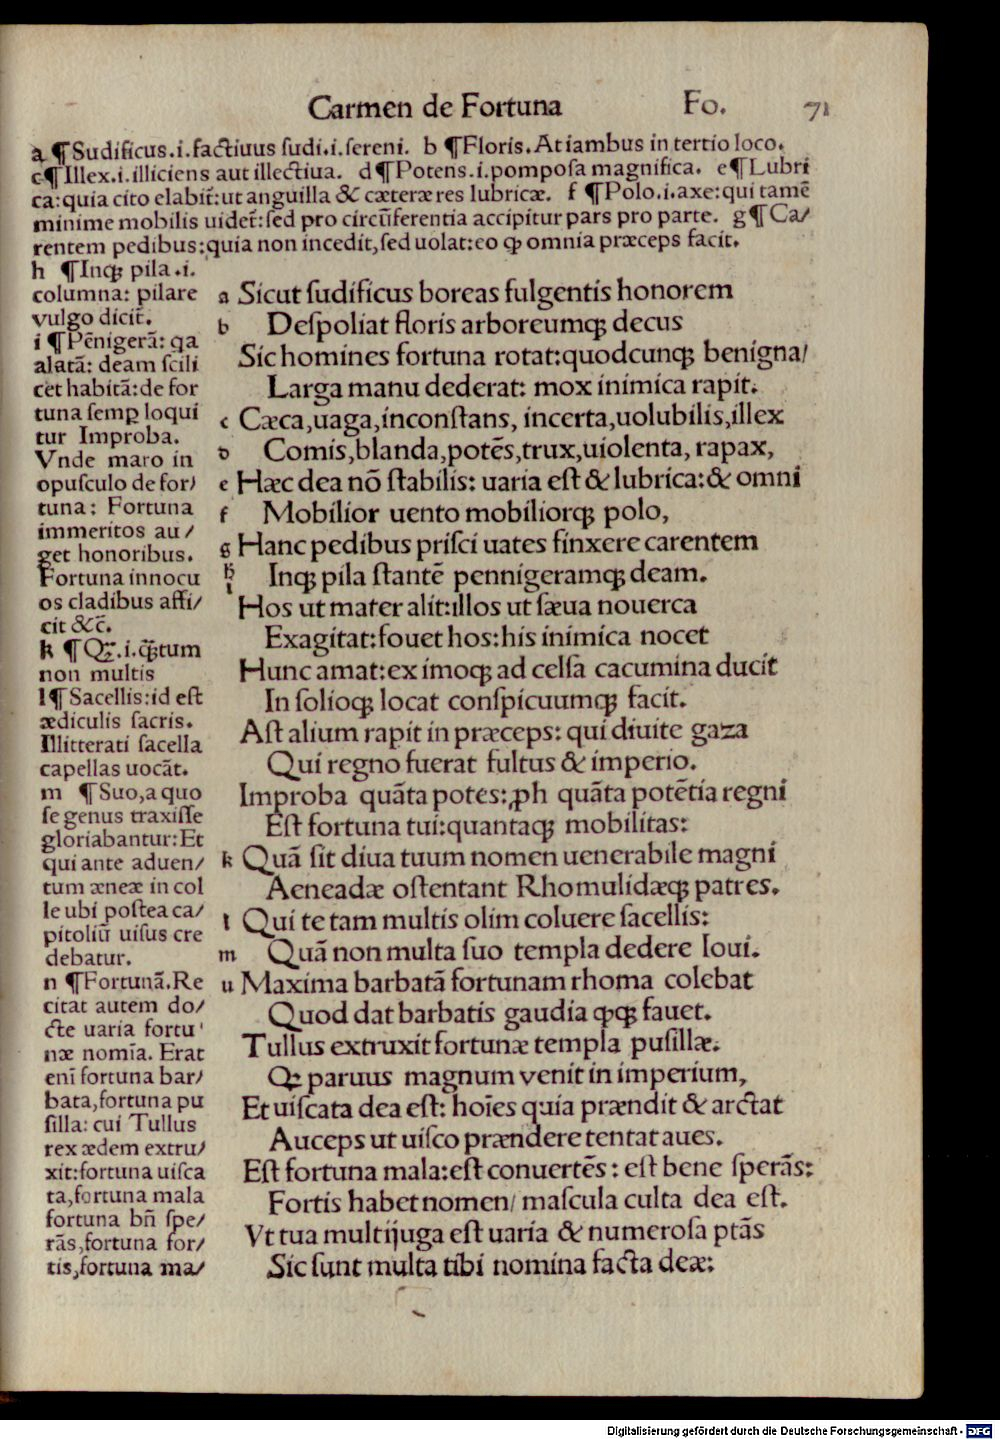 Carmen de Fortuna Fo. 71
a ¶Sudificus.i.factiuus ſudi.i.ſereni. b ¶Floris. At iambus in tertio loco.
c¶Illex.i.illiciens aut illectiua. d¶Potens.i.pompoſa magnifica. e¶Lubri
ca:quia cito elabit̄:ut anguilla & cæteræ res lubricæ. f ¶Polo.i.axe:qui tamē
minime mobilis uidet̄:ſed pro circūferentia accipitur pars pro parte. g¶Ca/
rentem pedibus:quia non incedit,ſed uolat:eo ꝙ omnia præceps facit.
h ¶Inqꝫ pila .i.
columna: pilare
vulgo dicit̄.
i ¶Pēnigerā: qa
alatā: deam ſcili
cet habitā:de for
tuna ſemꝑ loqui
tur Improba.
Vnde maro in
opuſculo de for/
tuna: Fortuna
immeritos au/
get honoribus.
Fortuna innocu
os cladibus affi/
cit &c̄.
k ¶Qꝫ.i.qꝫtum
non multis
l¶Sacellis:id eſt
ædiculis ſacris.
Illitterati ſacella
capellas uocāt.
m ¶Suo,a quo
ſe genus traxiſſe
gloriabantur:Et
qui ante aduen/
tum æneæ in col
le ubi poſtea ca/
pitoliū uiſus cre
debatur.
n ¶Fortunā.Re
citat autem do/
cte uaria fortu'
næ nomīa. Erat
enī fortuna bar/
bata,fortuna pu
ſilla: cui Tullus
rex ædem extru/
xit:fortuna uiſca
ta,fortuna mala
fortuna bn̄ ſpe/
rās,fortuna for/
tis,fortuna ma/
a Sicut ſudificus boreas fulgentis honorem
b Deſpoliat floris arboreumqꝫ decus
Sic homines fortuna rotat:quodcunqꝫ benigna/
Larga manu dederat: mox inimica rapit.
c Cæca,uaga,inconſtans, incerta,uolubilis,illex
d Comis,blanda,potēs,trux,uiolenta, rapax,
e Hæc dea nō ſtabilis: uaria eſt & lubrica:& omni
f Mobilior uento mobiliorqꝫ polo,
g Hanc pedibus priſci uates finxere carentem
h i Inqꝫ pila ſtantē pennigeramqꝫ deam.
Hos ut mater alit:illos ut ſæua nouerca
Exagitat:fouet hos:his inimica nocet
Hunc amat:ex imoqꝫ ad celſa cacumina ducit
In ſolioqꝫ locat conſpicuumqꝫ facit.
Aſt alium rapit in præceps: qui diuite gaza
Qui regno fuerat fultus & imperio.
Improba quāta potes: ꝓh quāta potētia regni
Eſt fortuna tui:quantaqꝫ mobilitas:
k Quā ſit diua tuum nomen uenerabile magni
Aeneadæ oſtentant Rhomulidæqꝫ patres.
l Qui te tam multis olim coluere ſacellis:
m Quā non multa ſuo templa dedere Ioui.
u Maxima barbatā fortunam rhoma colebat
Quod dat barbatis gaudia ꝙqꝫ fauet.
Tullus extruxit fortunæ templa puſillæ.
Qꝫ paruus magnum venit in imperium,
Et uiſcata dea eſt: hoīes quia prændit & arctat
Auceps ut uiſco prændere tentat aues.
Eſt fortuna mala:eſt conuertēs: eſt bene ſperās:
Fortis habet nomen/ maſcula culta dea eſt.
Vt tua multijuga eſt uaria & numeroſa ptās
Sic ſunt multa tibi nomina facta deæ:
Digitalisierung gefördert durch die Deutsche Forschungsgemeinschaft - DFG